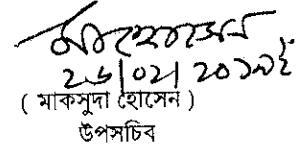 ২৬/০২/২০১৯ইং
( মাকসুদা হোসেন )
উপসচিব